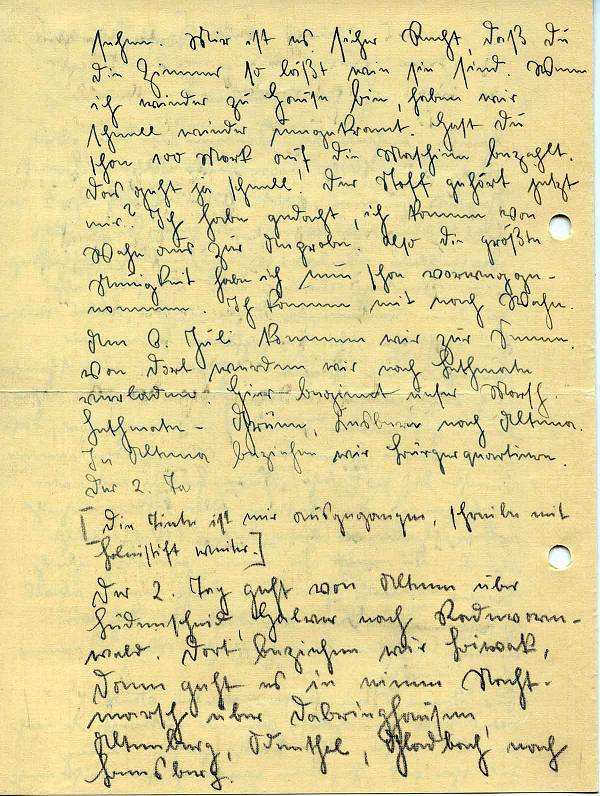 sehen. Mir ist es sicher Recht, daß du
die Zimmer so läßt wie sie sind. Wenn
ich wieder zu Hause bin, haben wir
schnell wieder umgekramt. Hast du
schon 100 Mark auf die Maschine bezahlt.
Das geht ja schnell. Der Stoff gehört jetzt
mir? Ich habe gedacht, ich komme von
Wahn aus zur Anprobe. Also die größte
Neuigkeit habe ich nun schon vorwegge-
nommen. Ich komme mit nach Wahn.
Am 6. Juli kommen wir zur Senne.
Von dort werden wir nach Lethmate
verladen. Hier beginnt unser Marsch.
Lethmate - Grüne, nach Altena.
In Altena beziehen wir Bürgerquartiere.
Der 2. Ta
[Die Tinte ist mir ausgegangen, schreibe mit
Bleistift weiter.]
Der 2. Tag geht von Altena über
Lüdenscheid, Halver nach Radevorm-
wald. Dort beziehen wir Biwak,
dann geht es in einem Nacht-
marsch über Dabringhausen,
Altenberg, Odenthal, Gladbach nach
Bensberg.